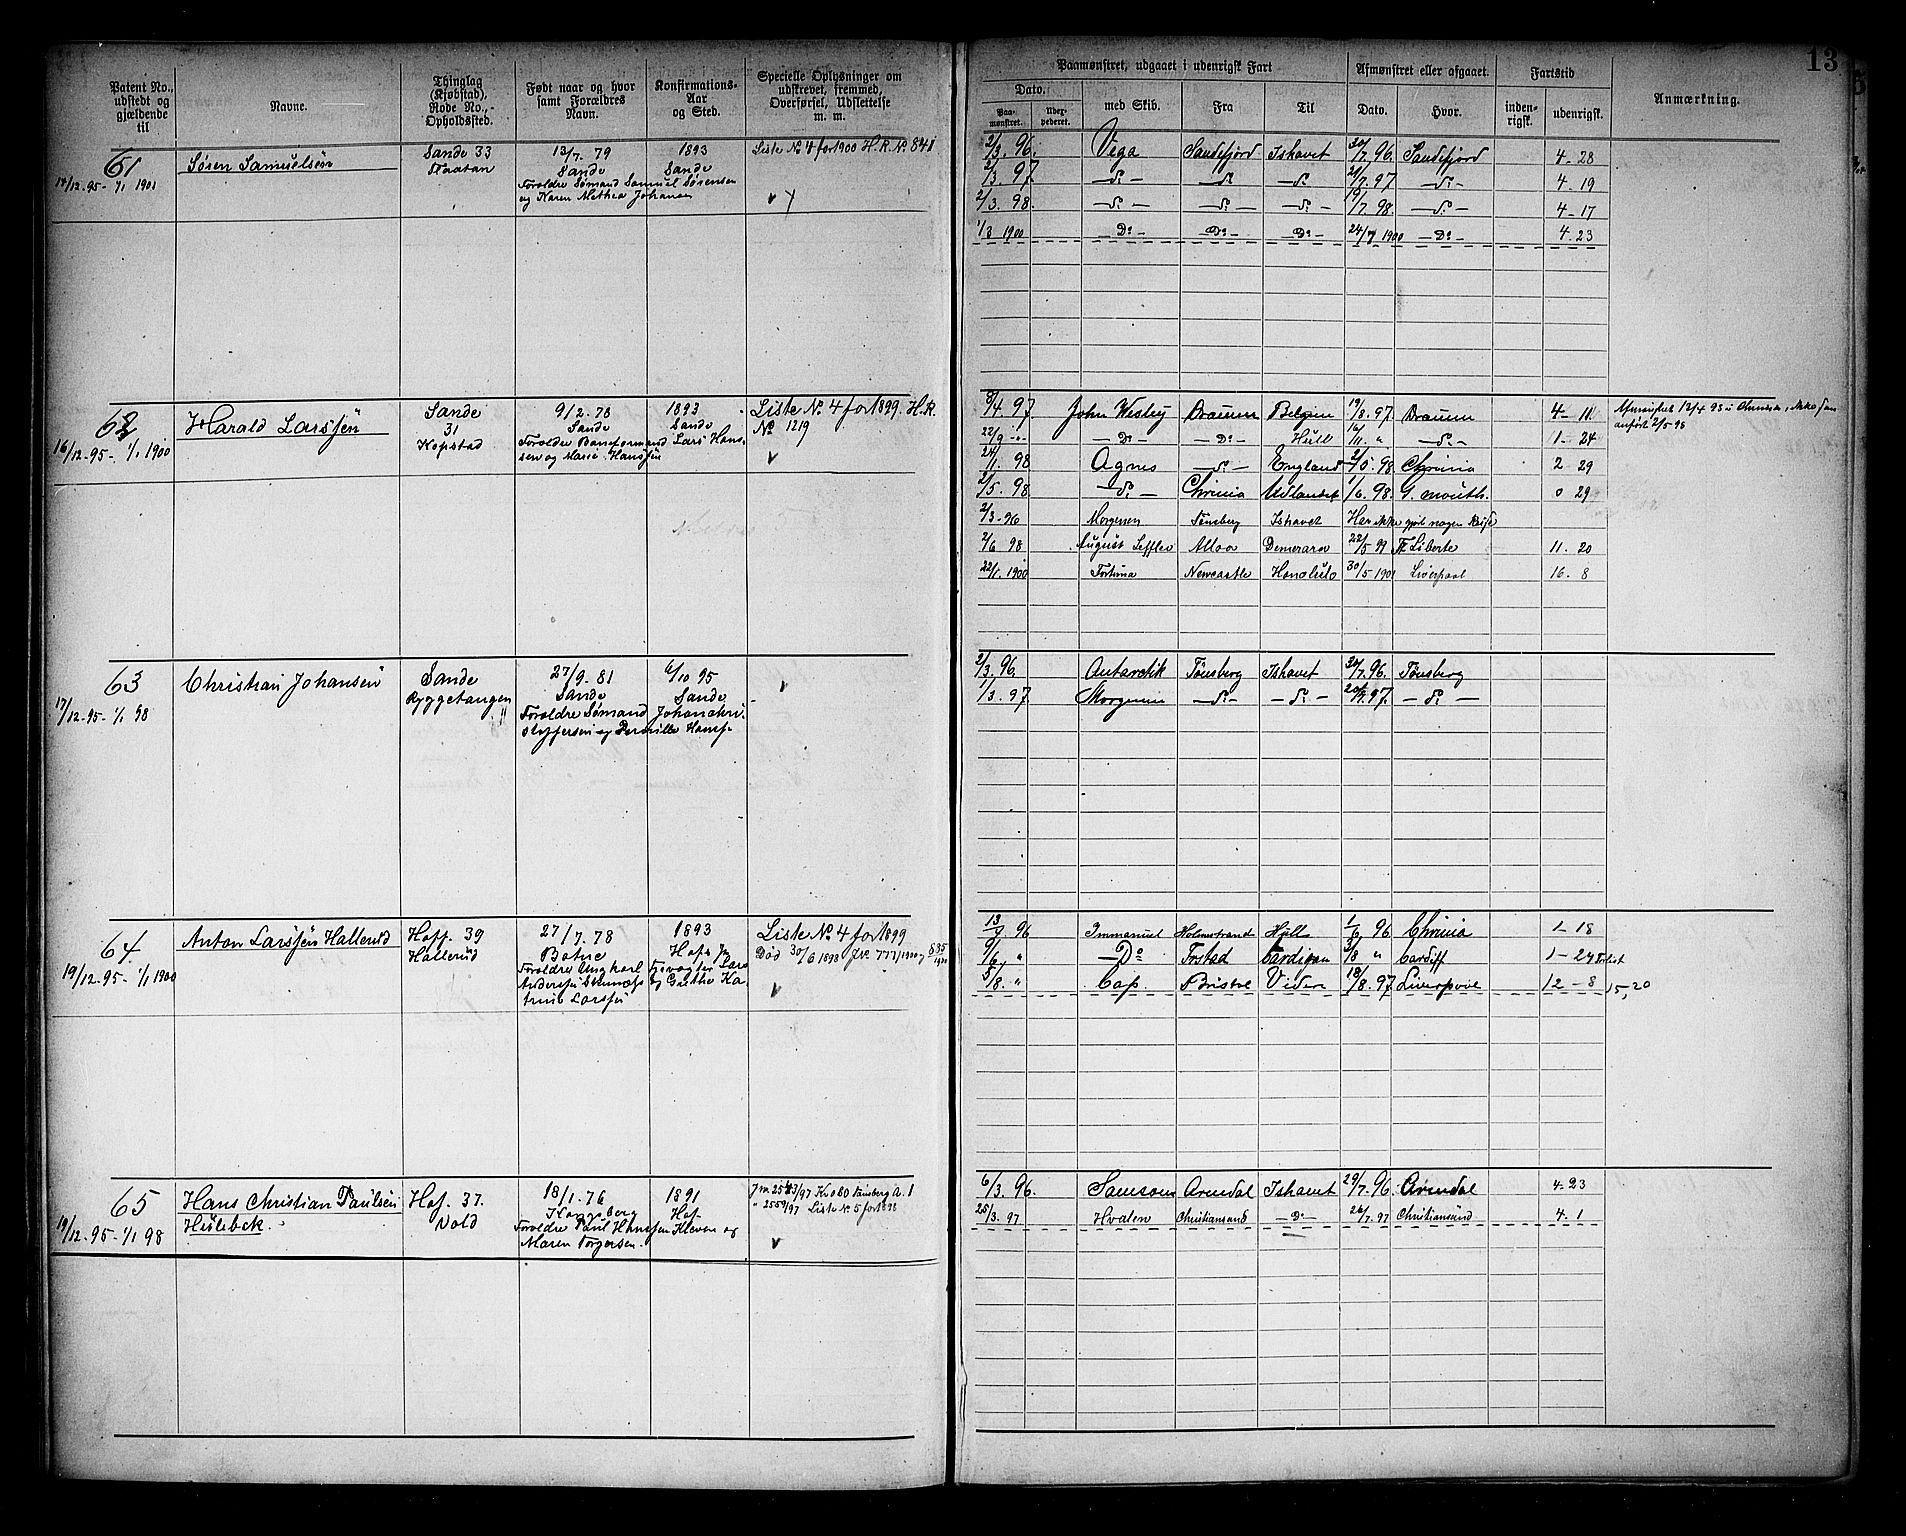 13
Patent No., udstedt og gjældende til
Navne.
Thinglag (Kjøbstad), Rode No.,- Opholdssted.
Født naar og hvor samt Forældres Navn.
Konfirmations- Aar og Sted.
Specielle Oplysninger om udskrevet, fremmed, Overførsel, Udslettelse m. m.
Paamønstret, udgaaet i udenrigsk Fart
Afmønstret eller afgaaet.
Fartstid
Anmærkning.
Dato.
Paa- mønstret.
med Skib.
Fra
Til
Dato.
Hvor.
inden- rigsk.
udenrigsk.
61
17/12.95- 1/1 1901
Søren Samuelsen
Sande 33
13/7. 79
Sande
Forældre Sømand Samuel Sørensen
og Karen Mathea Johansen
1893
Sande
Liste No 4 for 1900 H.R. No 841
2/3. 96. Vega Sandefjord Ishavet 30/7. 96. Sandefjord 4-28
2/3. 97. -do- -do- -do- 21/7. 97 -do- 4 19
2/3. 98. -do- -do- -do- 19/7. 98. -do- 4-17
1/3 1900 -Do- -Do- -Do- 24/7 1900 -Do- 4.23
62
16/12.95- 1/1 1900
Harald Larssen
Sande
31
Kopstad
9/2.78
Sande
Forældre Baneformand Lars Hans-
sen og Marie Hanssen
1893
Sande
Liste No. 4 for 1899. H.R.
No 1219
8/4 97 John Wesley Drammen Belgien 19/8.97. Drammen 4- 11
22/9 -"- -Do- -Do- Hull 16/11. " -do- 1- 24
24/1. 98 Agnes -do- England 2/5. 98. Chrania 2 29
2/5. 98 -do- Chrania Udlandet 1/6. 98. G. mouth. 0 29
2/3-96 Morgenen Tønsberg Ishavet Har ikke gjort nogen Reise
2/6 98 August Leffler Alloa Demerara 22/5 99 Liberte 11. 20
22/1. 1900 Fortuna Newcastle Honolulo 30/5 1901 Liverpool 16. 8
anført 2/5 98
63
17/12.95- 1/1 98
Christian Johansen
Sande
Ryggetangen
27/9. 81
Sande
Forældre Sømand Johan Kri-
stoffersen og Pernille Hansd.
4/10 95
Sande
2/3. 96. Antarctik Tønsberg Ishavet 30/7. 96. Tønsberg
1/3. 97. Morgenen -do- -do- -do-
64
19/12.95- 1/1 1900
Anton Larssen Hallerud
Hoff. 39
Hallerud
27/7. 78
Botne
1893
Hof
Liste No. 4 for 1899
Død 30/6 1898
96 Immanuel Holmestrand Hull 1/6 96 Chrania 1- 18
9/6. " -Do- Cardigan 3/8 " Cardiff 1-27
5/8. " Cap Bristol 18/8. 97. Liverpool 12-8 15,20
65
19/12.95- 1/1 98
Hans Christian Paulsen
Hulebek.
Hof. 37.
Vold
18/1.76
Kongsberg
Forældre Paul Hanssen Klevar og
Maren Torgersen.
1891
Hof
Liste No. 5 for 1898
6/3. 96. Samson Arendal Ishavet 29/7. 96. Arendal 4.23
25/3. 97 Hvalen Christiansand -Do- 26/7. 97 Christiansund 4. 1